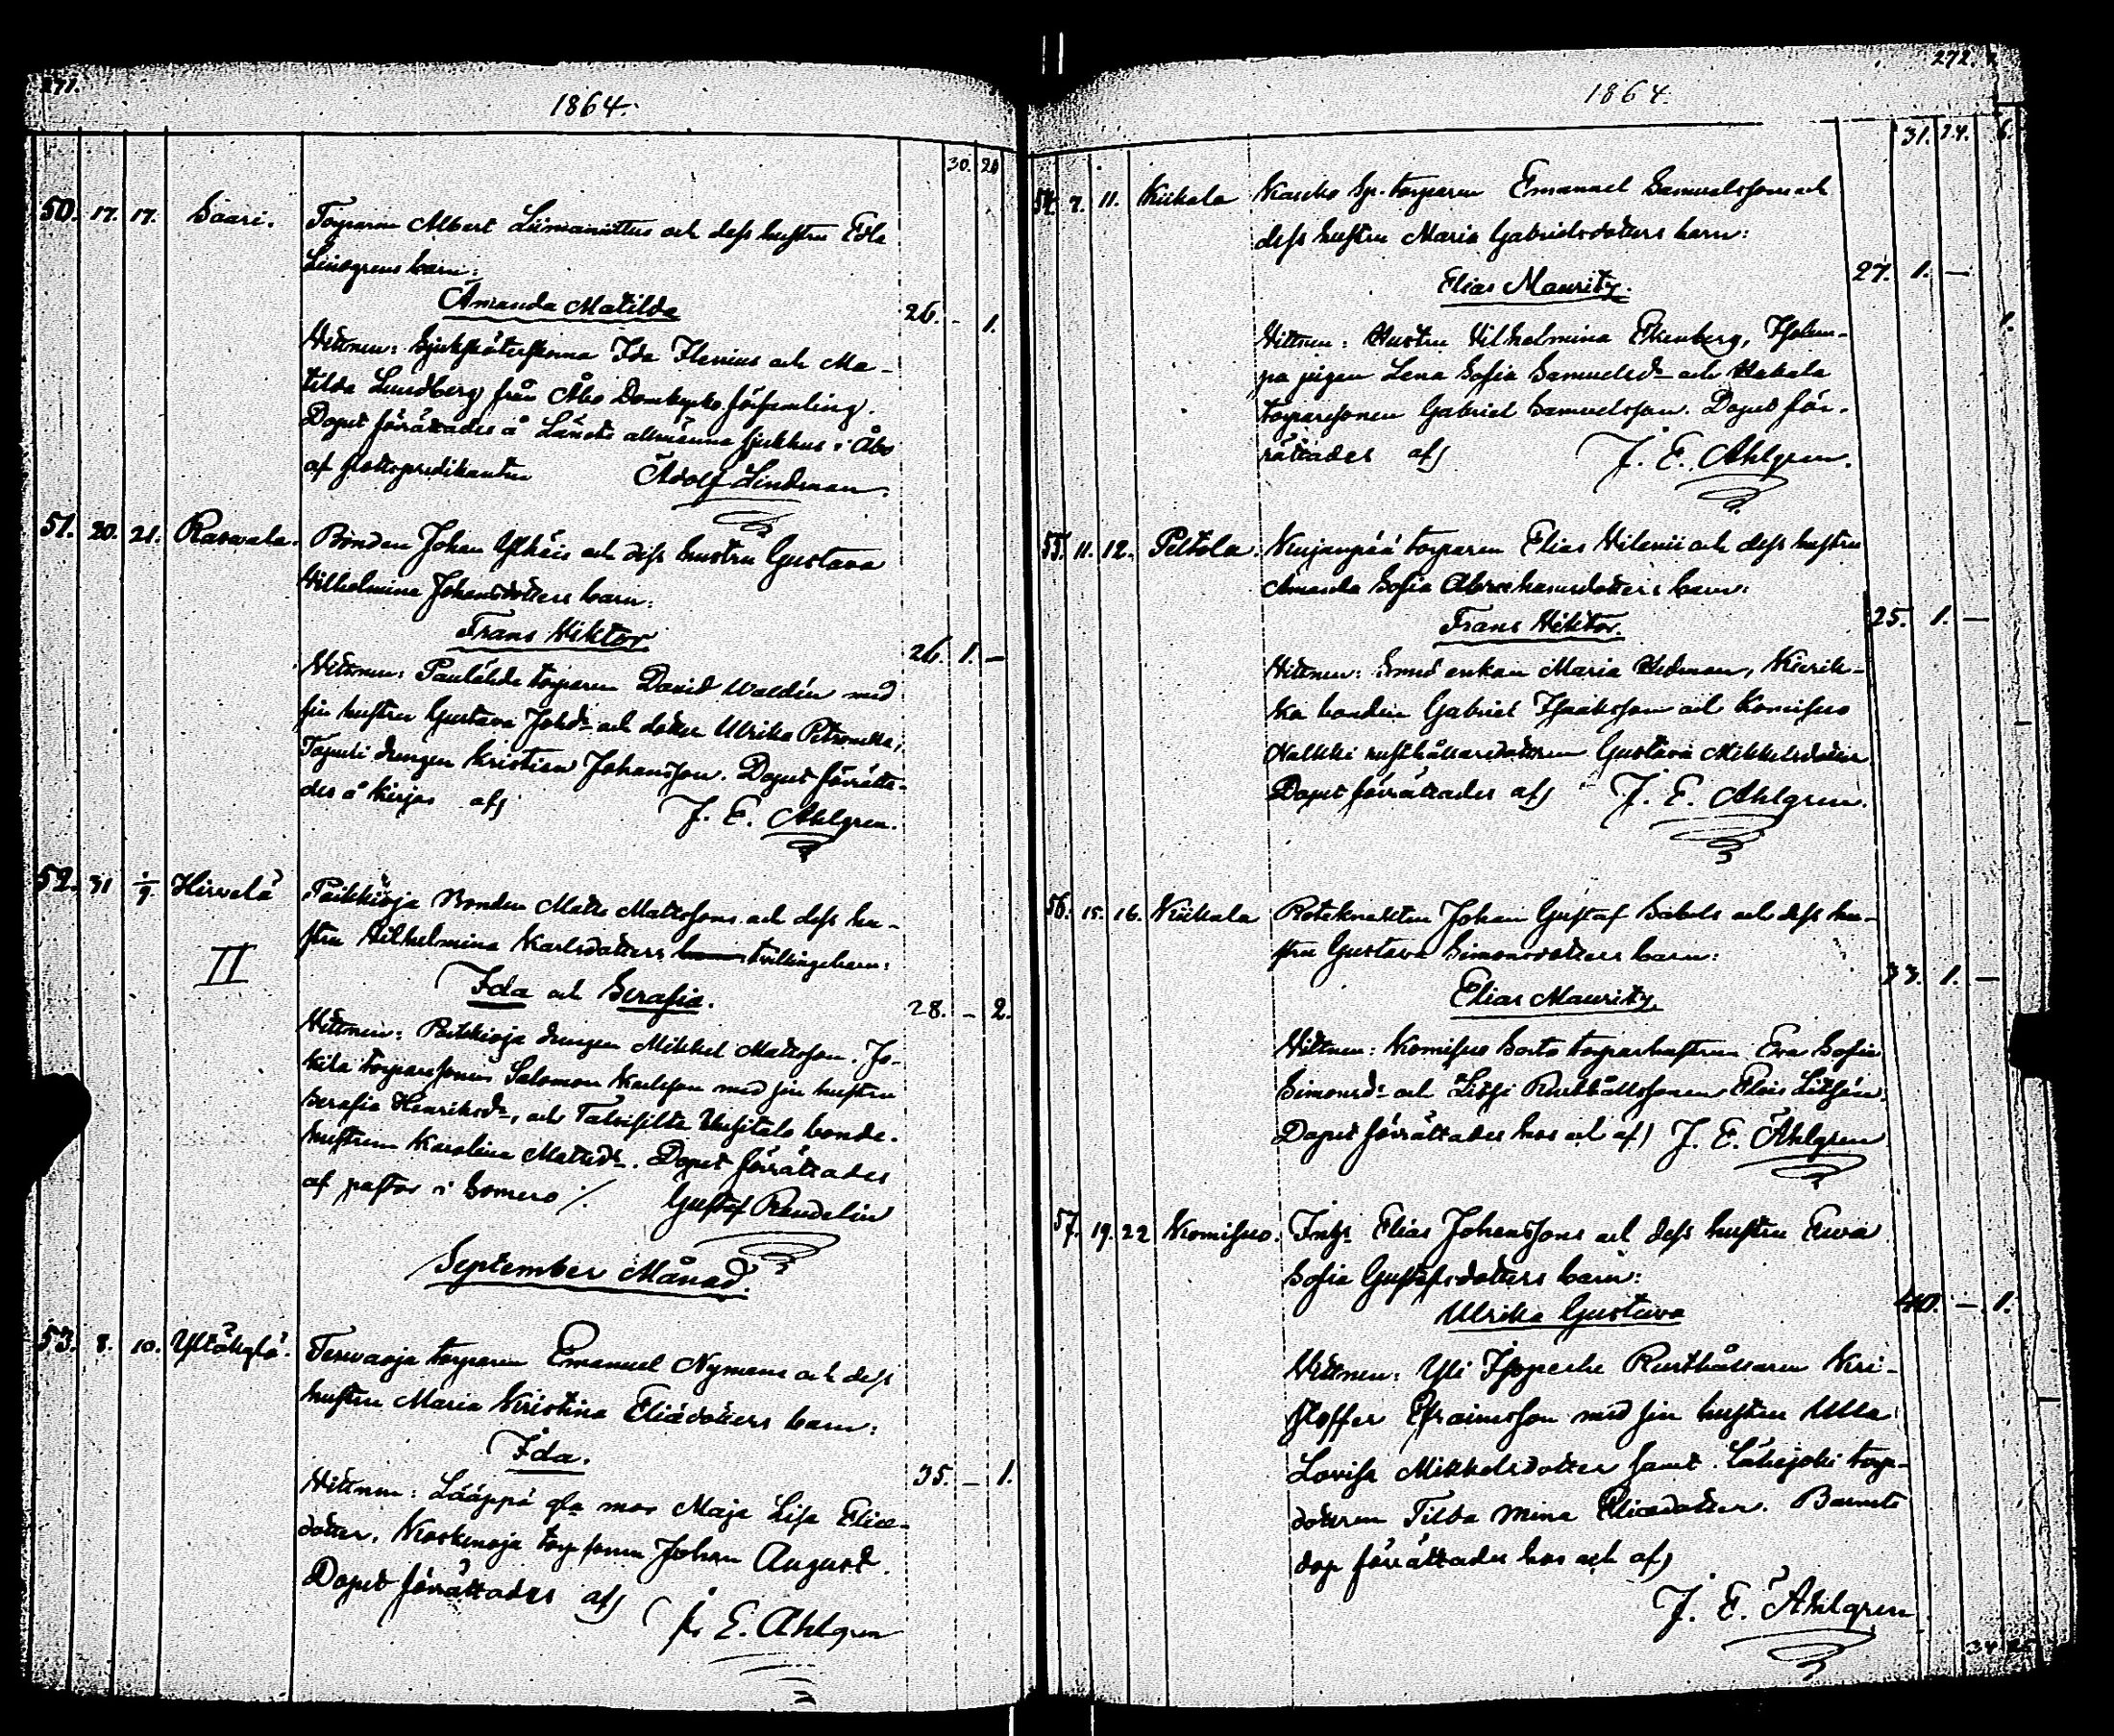 271.
1864.
30. 20
50. 17. 17. Saari. Torparen Albert Liinaniittus och dess hustru Edla
Lindgrens barn:
Amanda Matilda 26. - 1.
Vittnen: Sjuksköterskorna Ida Ilenius och Ma-
tilda Lundberg från Åbo Domkyrko församling.
Dopet förrättades å Länets allmänna sjukhus i Åbo
af slottspredikanten Adolf Lindman.
51. 20. 21. Raswala. Bonden Johan Ylhäis och dess hustru Gustava
Vilhelmina Johansdotters barn:
Frans Viktor 26. 1. -
Vittnen: torparen David Waldén med
sin hustru Gustava Johd. och dotter Ulrika Petronella,
Tapuli drengen Kristian Johansson. Dopet förrätta-
des å Kirjas af) J. E. Ahlgren.
52. 31 1/9. Hirvelä Paikkioja Bonden Matts Mattssons och dess hu-
stru Vilhelmina Karlsdotters barn tvillingebarn:
II
Ida och Serafia. 28. - 2.
Vittnen: Paikkioja drengen Mikkel Mattsson, Jo-
kila torparesonen Salomon Karlsson med sin hustru
Serafia Henriksd., och Talvisilta Uusitalo bonde-
hustrun Karolina Mattsd. Dopet förrättades
af pastor i Somero ./. Gustaf Randelin
September Månad.
53. 8. 10. Yltäkylä. Terwaoja torparen Emanuel Nymans och dess
hustru Maria Kristina Eliædotters barn:
Ida. 35. - 1.
Vittnen: Lääppä gla mor Maja Lisa Eliæ-
dotter, Koskenoja torp sonen Johan August.
Dopet förrättades af) J. E. Ahlgren
272.
1864.
31. 24. 6.
54. 7. 11. Kiikala Kaukosp. torparen Emanuel Samuelssons och
dess hustru Maria Gabrielsdotters barn:
Elias Mauritz. 27. 1. -
1.
Vittnen: Hustru Vilhelmina Ekenberg,
pa pigan Lena Sofia Samuelsd. och Hakala
torparesonen Gabriel Samuelsson. Dopet för-
rättades af) J. E. Ahlgren.
55. 11. 12. Peltola. Kujanpää torparen Elias Vilenii och dess hustru
Amanda Sofia Abrahamsdotters barn:
Frans Viktor. 25. 1. -
Vittnen: Smed enkan Maria Hedman, Kierik-
ka bonden Gabriel Isaaksson och Komisuo
Nalkki rusthållaredottren Gustava Mikkelsdotter
Dopet förrättades af) J. E. Ahlgren.
56. 15. 16. Kiikala Roteknekten Johan Gustaf Sabels och dess hu-
stru Gustava Simonsdotters barn:
Elias Mauritz. 33. 1. -
Vittnen: Komisuo torparhustrun Eva Sofia
Simonsd. och Rusthållssonen Elias
Dopet förrättades hos och af) J. E. Ahlgren
57. 19. 22 Komisuo. Inhs. Elias Johanssons och dess hustru Eva
Sofia Gustafsdotters barn:
Ulrika Gustava 40. - 1.
Vittnen: Yli Rusthållaren Kri-
stoffer Efraimsson med sin hustru Ulla
Lovisa Mikkelsdotter samt Lähejoki torp-
dottren Tilda Mina Eliædotter. Barnets
dop förrättades hos och af)
J. E. Ahlgren
34. 25